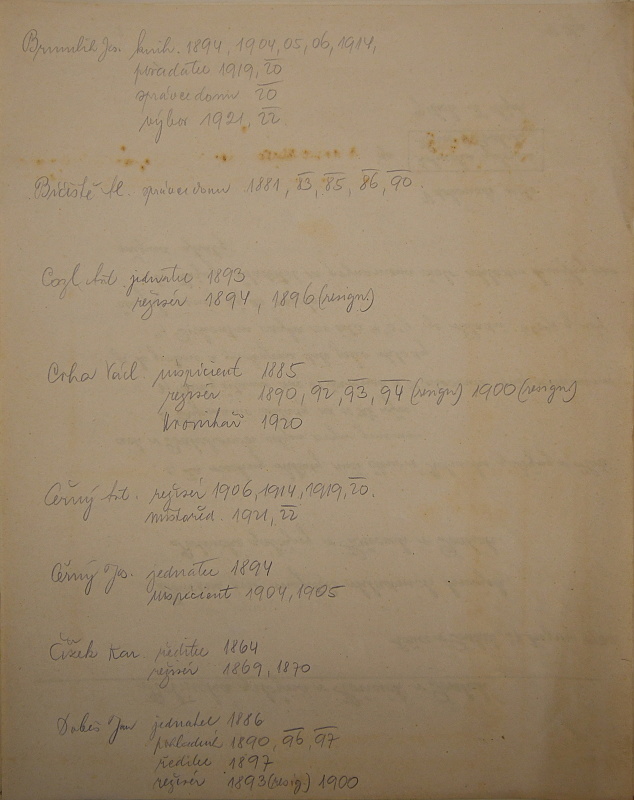 Brumlík Jos. knih. 1894, 1904, 05, 06, 1914,
pořadatel 1919, 20
správce domu 20
výbor 1921, 22.
správce domu 1881, 83, 85, 86, 90.
Ant. jednatel 1893
režisér 1894, 1896 (resign.)
Crha Václ inspicient 1885
režisér 1890, 92, 93, 94 (resign) 1900 (resign)
Kronikář 1920
Černý Ant. režisér 1906, 1914, 1919, 20.
místořed. 1921, 22
Černý Jos. jednatel 1894
inspicient 1904, 1905
Čížek Kar. ředitel 1864
režisér 1869, 1870
Dobeš Jan jednatel 1886
pokladník 1890, 96, 97
ředitel 1897
režisér 1893 (resig.) 1900